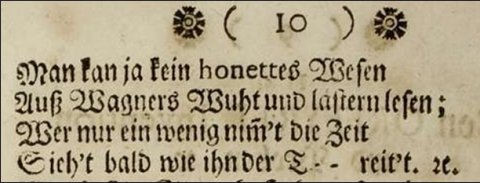 ( 10 )
Man kan ja kein honettes Wesen
Auß Wagners Wuht und lästern lesen;
Wer nur ein wenig nim̃'t die Zeit
Sieh't bald wie ihn der T-- reit't. ꝛc.